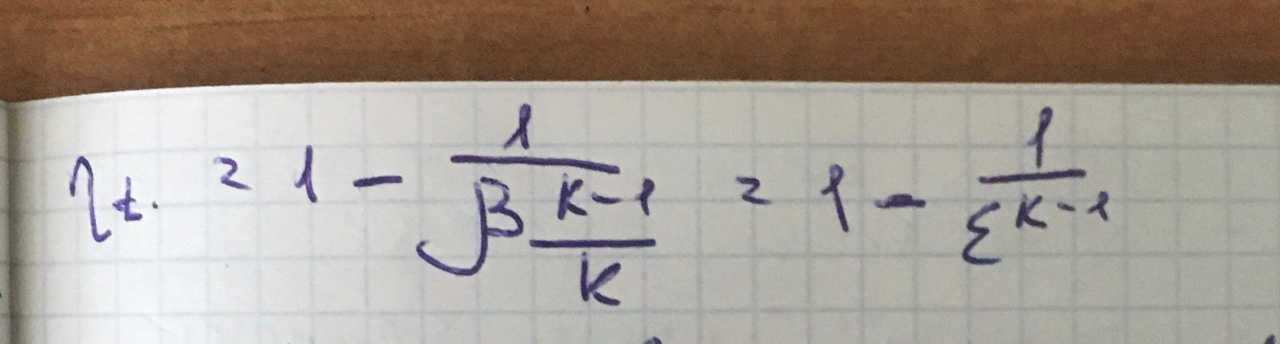 η_t. = 1 - 1/(β^((K-1)/K)) = 1 - 1/(ε^(K-1))